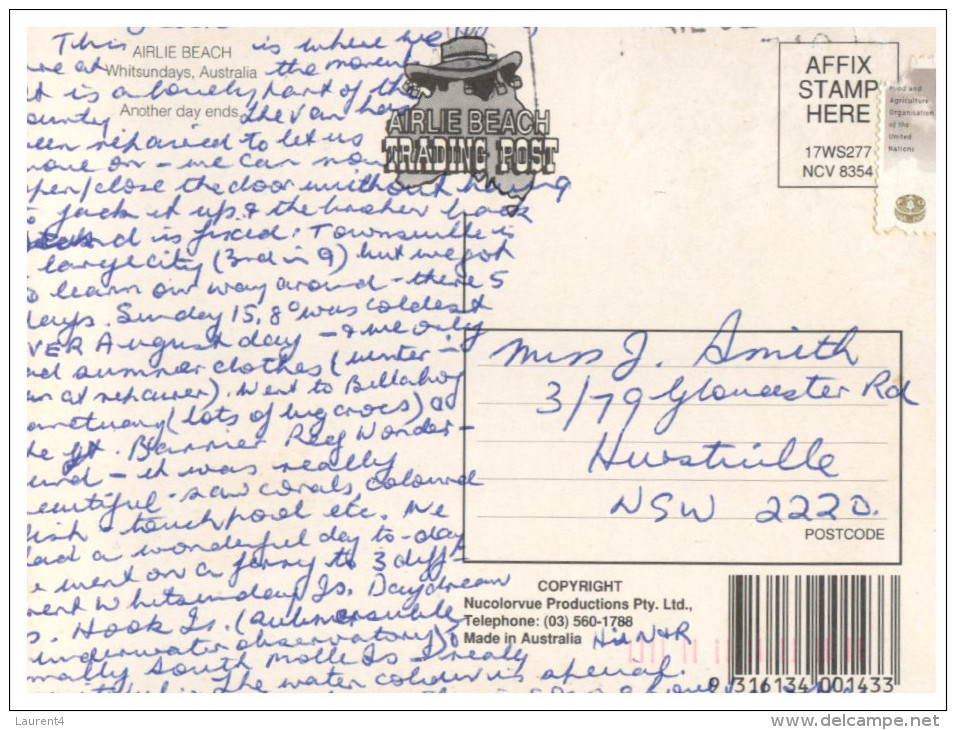 This is where we
are at the moment
It is a lovely part of the
country. The van has
been repaired to let us
move on - we can now
open/close the door without having
to jack it up & the busher back
end is fixed! Townsville is
a large city (3rd in Q) but we got
to learn our way around - there 5
days. Sunday 15.8° was coldest
EVER August day - & we only
had summer clothes (winter -
van at repairer). Went to Billabong
Sanctuary (lots of big crocs) &
the Gt. Barrier Reef Wonder-
land - it was really
beautiful - saw corals, coloured
fish - touchpool etc. We
had a wonderful day to-day
we went on a ferry to 3 diff-
erent Whitsunday Is. Daydream
Is. Hook Is. (submersible
underwater observatory) &
finally South Molle Is - really
The water colour is special.
AIRLIE BEACH
Whitsundays, Australia
Another day ends
AIRLIE BEACH
TRADING POST
AFFIX
STAMP
HERE
17WS277
NCV 8354
Food and
Agriculture
Organisation
of the
United
Nations
Miss J. Smith
3/79 Gloucester Rd
Hurstville
NSW 2220.
POSTCODE
COPYRIGHT
Nucolorvue Productions Pty. Ltd.,
Telephone: (03) 560-1788
Made in Australia
N & R
9 316134 001433
Laurent4
www.delcampe.net